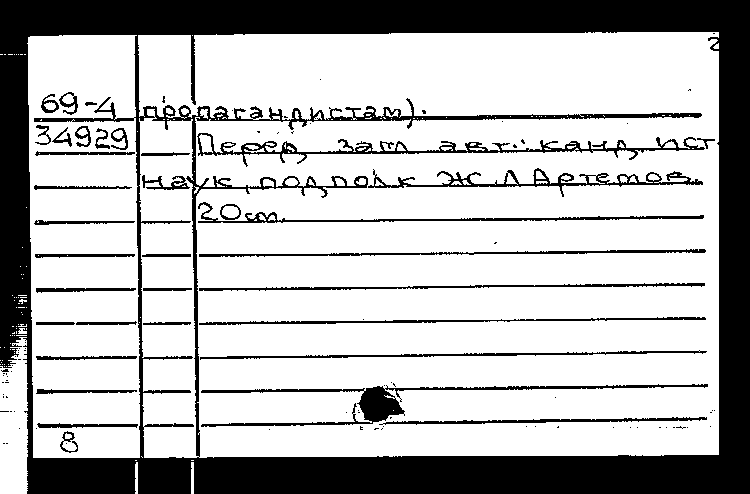 2
69-4 пропагандистам).
34929 Перед загл. авт.: канд. ист.
наук, подполк. Ж. Л. Артемов.
20 см.
8